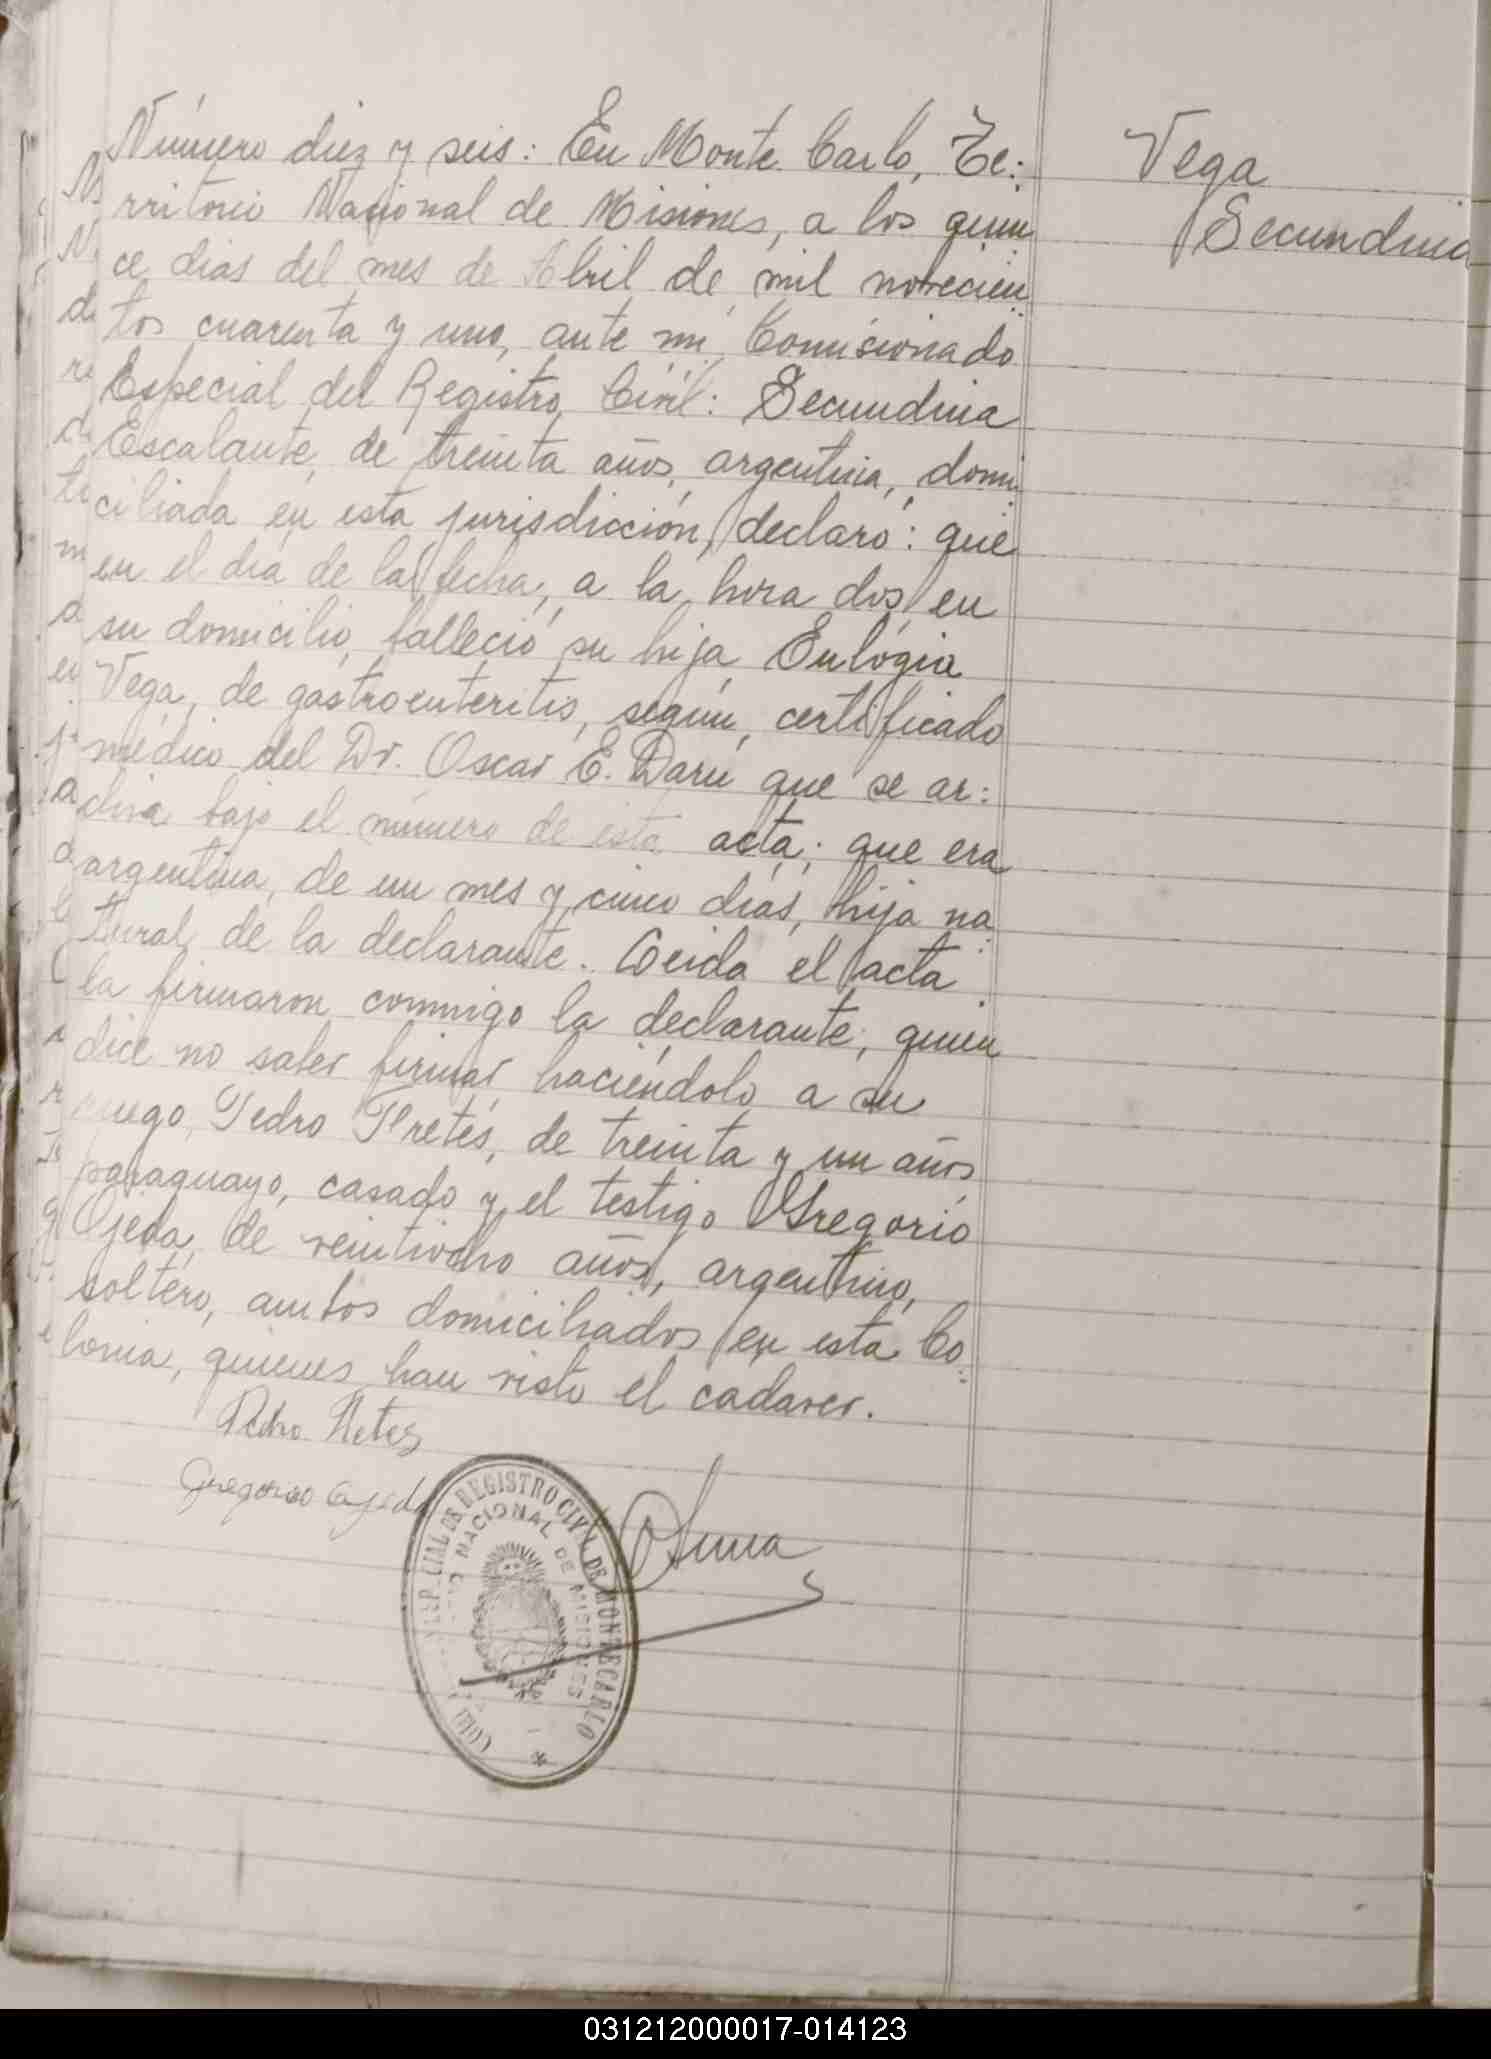 Número diez y seis: En Monte Carlo, Te:
rritorio Nacional de Misiones, a los quin
ce dias del mes de Abril de mil novecien
tos cuarenta y uno, ante mi, Comisionado
Especial del Registro Civil: Secundina
Escalante, de treinta años, argentina, domi
ciliada en esta jurisdicción, declaró: que
en el día de la fecha, a la hora dos, en
su domicilio, falleció su hija Eulogia
Vega, de gastroenteritis, según, certificado
médico del Dr. Oscar E. Daru que se ar:
chiva bajo el número de esta acta; que era
argentina, de un mes y cinco días, hija na
tural de la declarante. Leida el acta
la firmaron conmigo la declarante, quien
dice no saber firmar haciéndolo a su
ruego, Pedro Pretes, de treinta y un años
paraguayo, casado y el testigo Gregorio
Ojeda, de veintiocho años, argentino,
soltero, ambos domiciliados en esta Co
lonia, quienes han visto el cadaver.
Vega
Secundina
Pedro
Gregorio Ojeda
REGISTRO CIVIL DE MONTECARLO
NACIONAL DE MISIONES
031212000017-014123